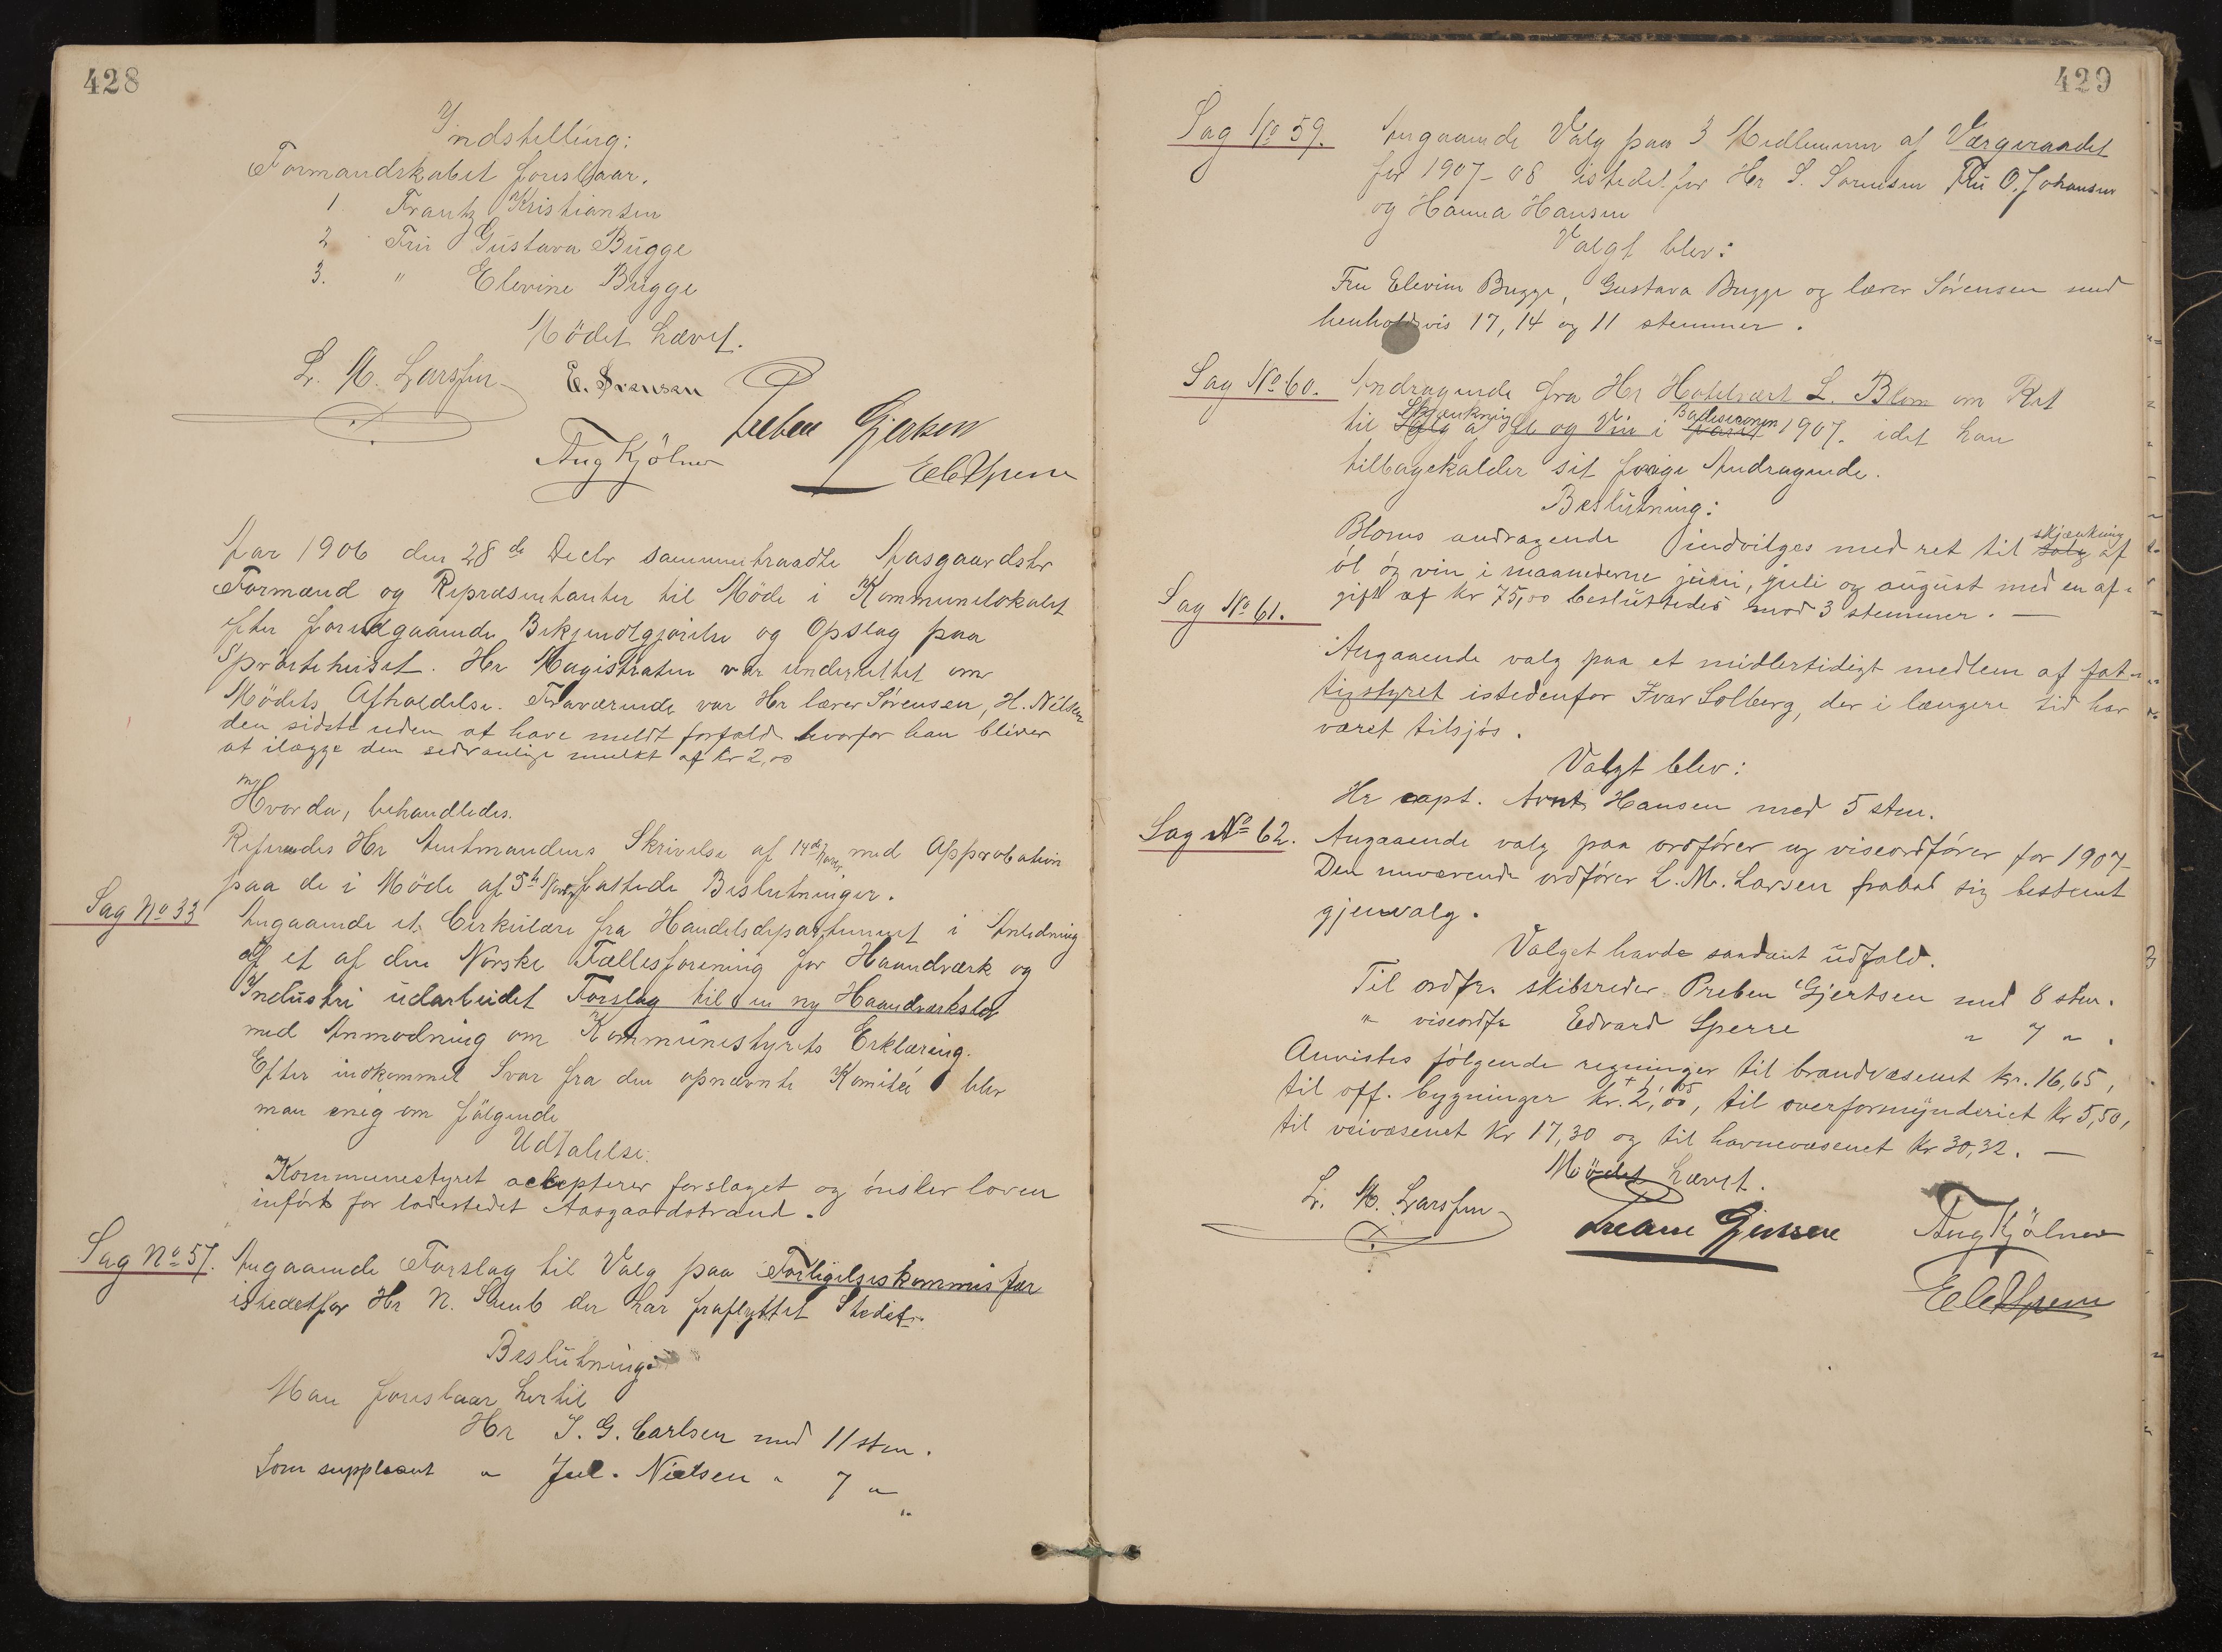 428
Indstilling:
Formandskabet foreslaar.
1 Frantz Kristiansen
2 Fru Gustava Bugge
3. " Elevine Bugge
Mödet hævet.
L. M. Larssen E. Sörensen Preben Gjertsen
Aug Kjölner
Aar 1906 den 28de Decbr sammentraadte Aasgaardstr
Formænd og Repræsentanter til Möde i Kommunelokalet
efter forudgaaende Bekjendtgjörelse og Opslag paa
Spröitehuset. Hr Magistraten var underrettet om
Mödets Afholdelse. Fraværende var Hr lærer Sörensen, H. Nilsen
den sidste uden at have meldt forfald hvorfor han bliver
at ilægge den sedvanlige mulkt af kr 2,00
Hvorda, behandledes.
Refereredes Hr Amtmandens Skrivelse af 14de Novbr med Approbation
paa de i Möde af 5te Novbr fattede Beslutninger.
Sag No 33 Angaaende et Cirkulære fra Handelsdepartementet i Anledning
af et af den Norske Fællesforening for Haandværk og
Industri udarbeidet Forslag til en ny Haandværkslov
med Anmodning om Kommunestyrets Erklæring.
Efter indkommet Svar fra den opnævnte Komité blev
man enig om fölgende
Udtalelse.
Kommunestyret accepterer forslaget og önsker loven
indfört for ladestedet Aasgaardstrand.
Sag No 57. Angaaende Forslag til Valg paa Forligelseskommissær
istedetfor Hr N. der har fraflyttet Stedet.
Beslutning:
Man foreslaar hertil
Hr J. G. Carlsen med 11 stem.
Som suppleant " Jul. Nielsen " 7 "
429
Sag No 59. Angaaende Valg paa 3 Medlemmer af Værgeraadet
for 1907-08 istedetfor Hr S. Sörensen Fru O. Johansen
og Hanna Hansen
Valgt blev:
Fru Elevine Bugge, Gustava Bugge og lærer Sörensen med
henholdsvis 17, 14 og 11 stemmer.
Sag No 60. Andragende fra Hr Hotelvært L. Blom om Ret
til Salg Skjænkning af Öl og Vin i Badesæsonen 1907. idet han
tilbagekalder sit forige Andragende.
Beslutning:
Bloms andragende indvilges med ret til salg skjænkning af
öl og vin i maanederne juni, juli og august med en af-
gift af kr 75,00 besluttedes mod 3 stemmer. —
Sag No 61.
Angaaende valg paa et midlertidigt medlem af fat-
tigstyret istedenfor Ivar Solberg, der i længere tid har
været tilsjös.
Valgt blev:
Hr capt. Arnt Hansen med 5 stem.
Sag No 62. Angaaende valg paa ordförer og viseordförer for 1907
Den nuværende ordförer L. M. Larsen frabad sig bestemt
gjenvalg.
Valget havde saadant udfald.
Til ordfr. skibsreder Preben Gjertsen med 8 stem.
" viseordfr Edvard Sperre " 7 " .
Anvistes fölgende regninger til brandvæsenet kr. 16,65,
til off. bygninger kr. 2,00, til overformynderiet kr 5,50,
til veivæsenet kr 17,30 og til havnevæsenet kr 30,32. —
Mödet hævet.
L. M. Larssen Preben Gjertsen Aug Kjölner